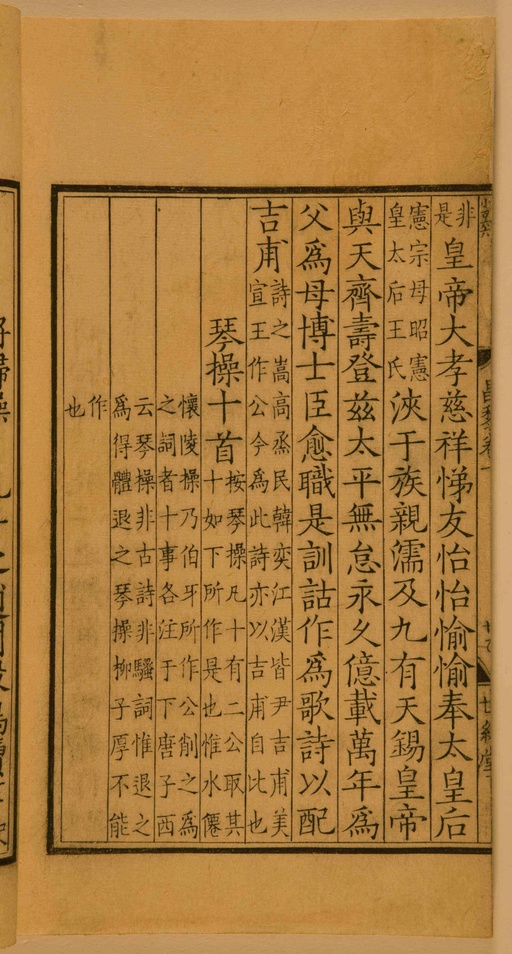 昌黎卷一
世綵堂
非是皇帝大孝慈祥悌友怡怡愉愉奉太皇后
憲宗母昭憲
皇太后王氏
浹于族親濡及九有天錫皇帝
與天齊壽登茲太平無怠永久億載萬年爲
父爲母博士臣愈職是訓詁作爲歌詩以配
吉甫
詩之嵩高烝民韓奕江漢皆尹吉甫美
宣王作公今爲此詩亦以吉甫自比也
琴操十首
按琴操凡十有二公取其
十如下所作是也惟水僊
懷陵操乃伯牙所作公削之爲
之詞者十事各注于下唐子西
云琴操非古詩非騷詞惟退之
爲得體退之琴操柳子厚不能
作
也